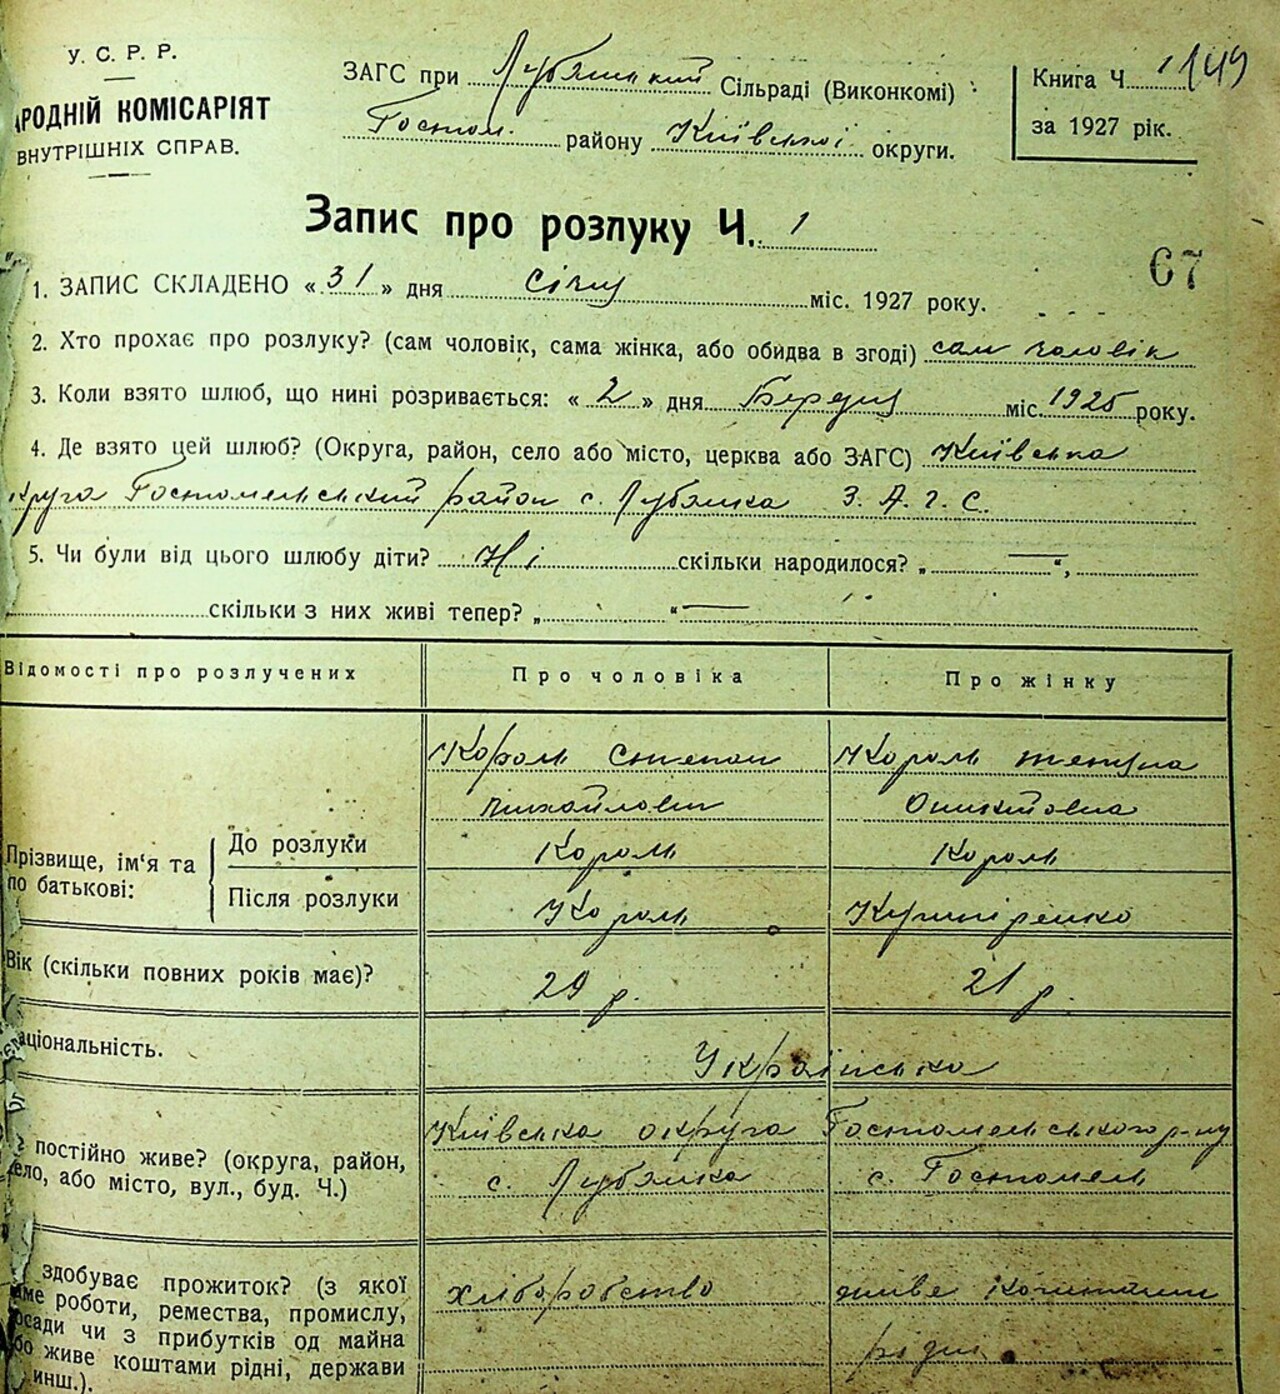 У. С. Р. Р.
АРОДНІЙ КОМІСАРІЯТ
ВНУТРІШНІХ СПРАВ.
ЗАГС при Лубянській Сільраді (Виконкомі)
Гостом. району Київської округи.
Книга Ч. 1 149
за 1927 рік.
Запис про розлуку Ч. 1
67
1. ЗАПИС СКЛАДЕНО « 31 » дня січня міс. 1927 року.
2. Хто прохає про розлуку? (сам чоловік, сама жінка, або обидва в згоді) сам чоловік
3. Коли взято шлюб, що нині розривається: « 2 » дня Березня міс. 1925 року.
4. Де взято цей шлюб? (Округа, район, село або місто, церква або ЗАГС) Київська
круга Гостомельський район с. Лубянка З. А. Г. С.
5. Чи були від цього шлюбу діти? Ні скільки народилося? „ — “,
скільки з них живі тепер? „ “ —
Відомості про розлучених Про чоловіка Про жінку
Король Степан Король
Михайлович
Прізвище, ім'я та по батькові: До розлуки Король Король
Після розлуки Король Кушніренко
Вік (скільки повних років має)? 29 р. 21 р.
аціональність. Українська
постійно живе? (округа, район, Київська округа Гостомельського р-ну
ело, або місто, вул., буд. Ч.) с. Лубянка с. Гостомель
здобуває прожиток? (з якої хліборобство живе коштами
ме роботи, ремества, промислу, рідні
осади чи з прибутків од майна
бо живе коштами рідні, держави
инш.).